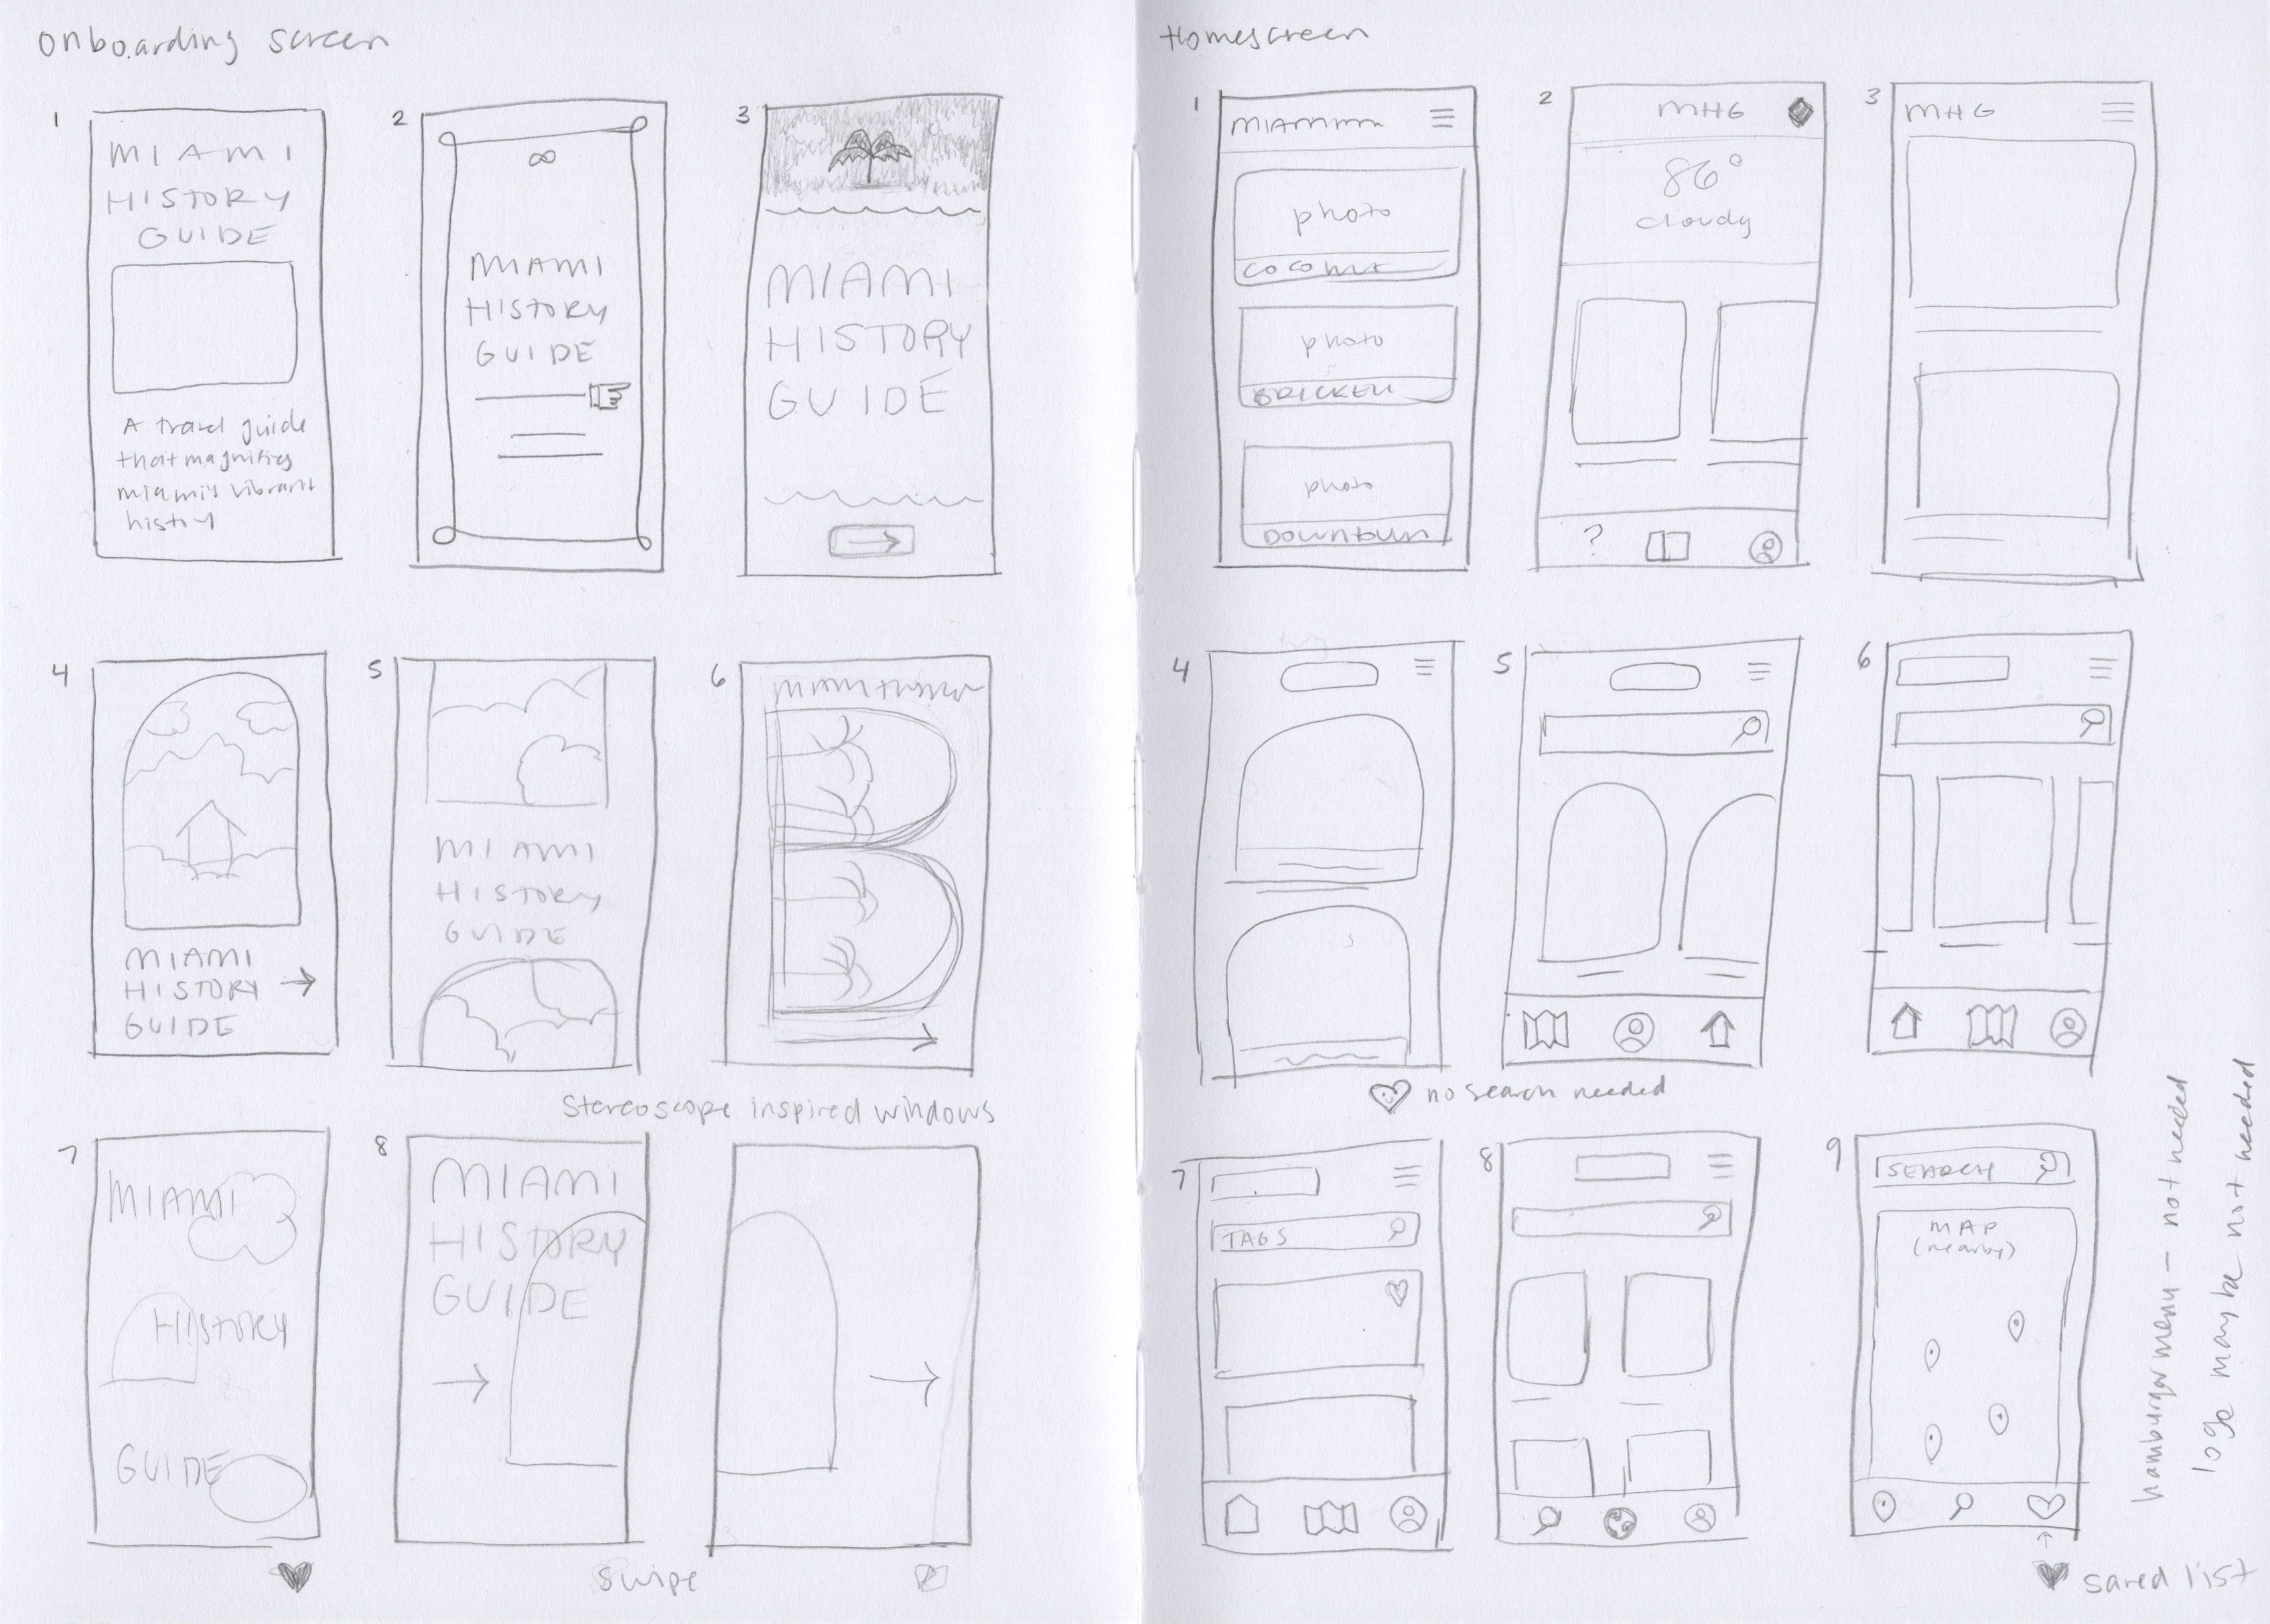 onboarding screen
1
MIAMI
HISTORY
GUIDE
A travel guide
that magnifies
miami's vibrant
history
2
MIAMI
HISTORY
GUIDE
3
MIAMI
HISTORY
GUIDE
4
MIAMI
HISTORY
GUIDE
5
MIAMI
HISTORY
GUIDE
6
Stereoscope inspired windows
7
MIAMI
HISTORY
GUIDE
8
MIAMI
HISTORY
GUIDE
swipe
Homescreen
1
photo
photo
BRICKELL
photo
DOWNTOWN
2
MHG
86°
cloudy
?
3
MHG
4
5
6
no search needed
7
TAGS
8
9
SEARCH
MAP
(nearby)
saved list
hamburger menu - not needed
logo may be not needed